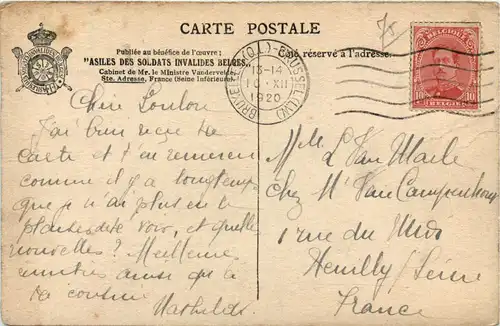 CARTE POSTALE
Publiée au bénéfice de l'œuvre ;
"ASILES DES SOLDATS INVALIDES BELGES"
Cabinet de Mr. le Ministre Vandervelde
Ste. Adresse, France (Seine Inférieure)
Côté réservé à l'adresse.
BRUXELLES (Q.L.) - BRUSSEL (L.W.)
13-14
10 XII
1920
BELGIQUE
10 10
BELGIË
Cher Loulou
J'ai bien reçu ta
carte et t'en remercie
comme il y a longtemps
que je n'ai plus eu le
plaisir de te voir, et quelle
nouvelles? Meilleure
ainsi qu'à
ta cousine
Mathilde
L Van Maele
chez Mr Van Campenhout
1 rue du Midi
Neuilly / Seine
France